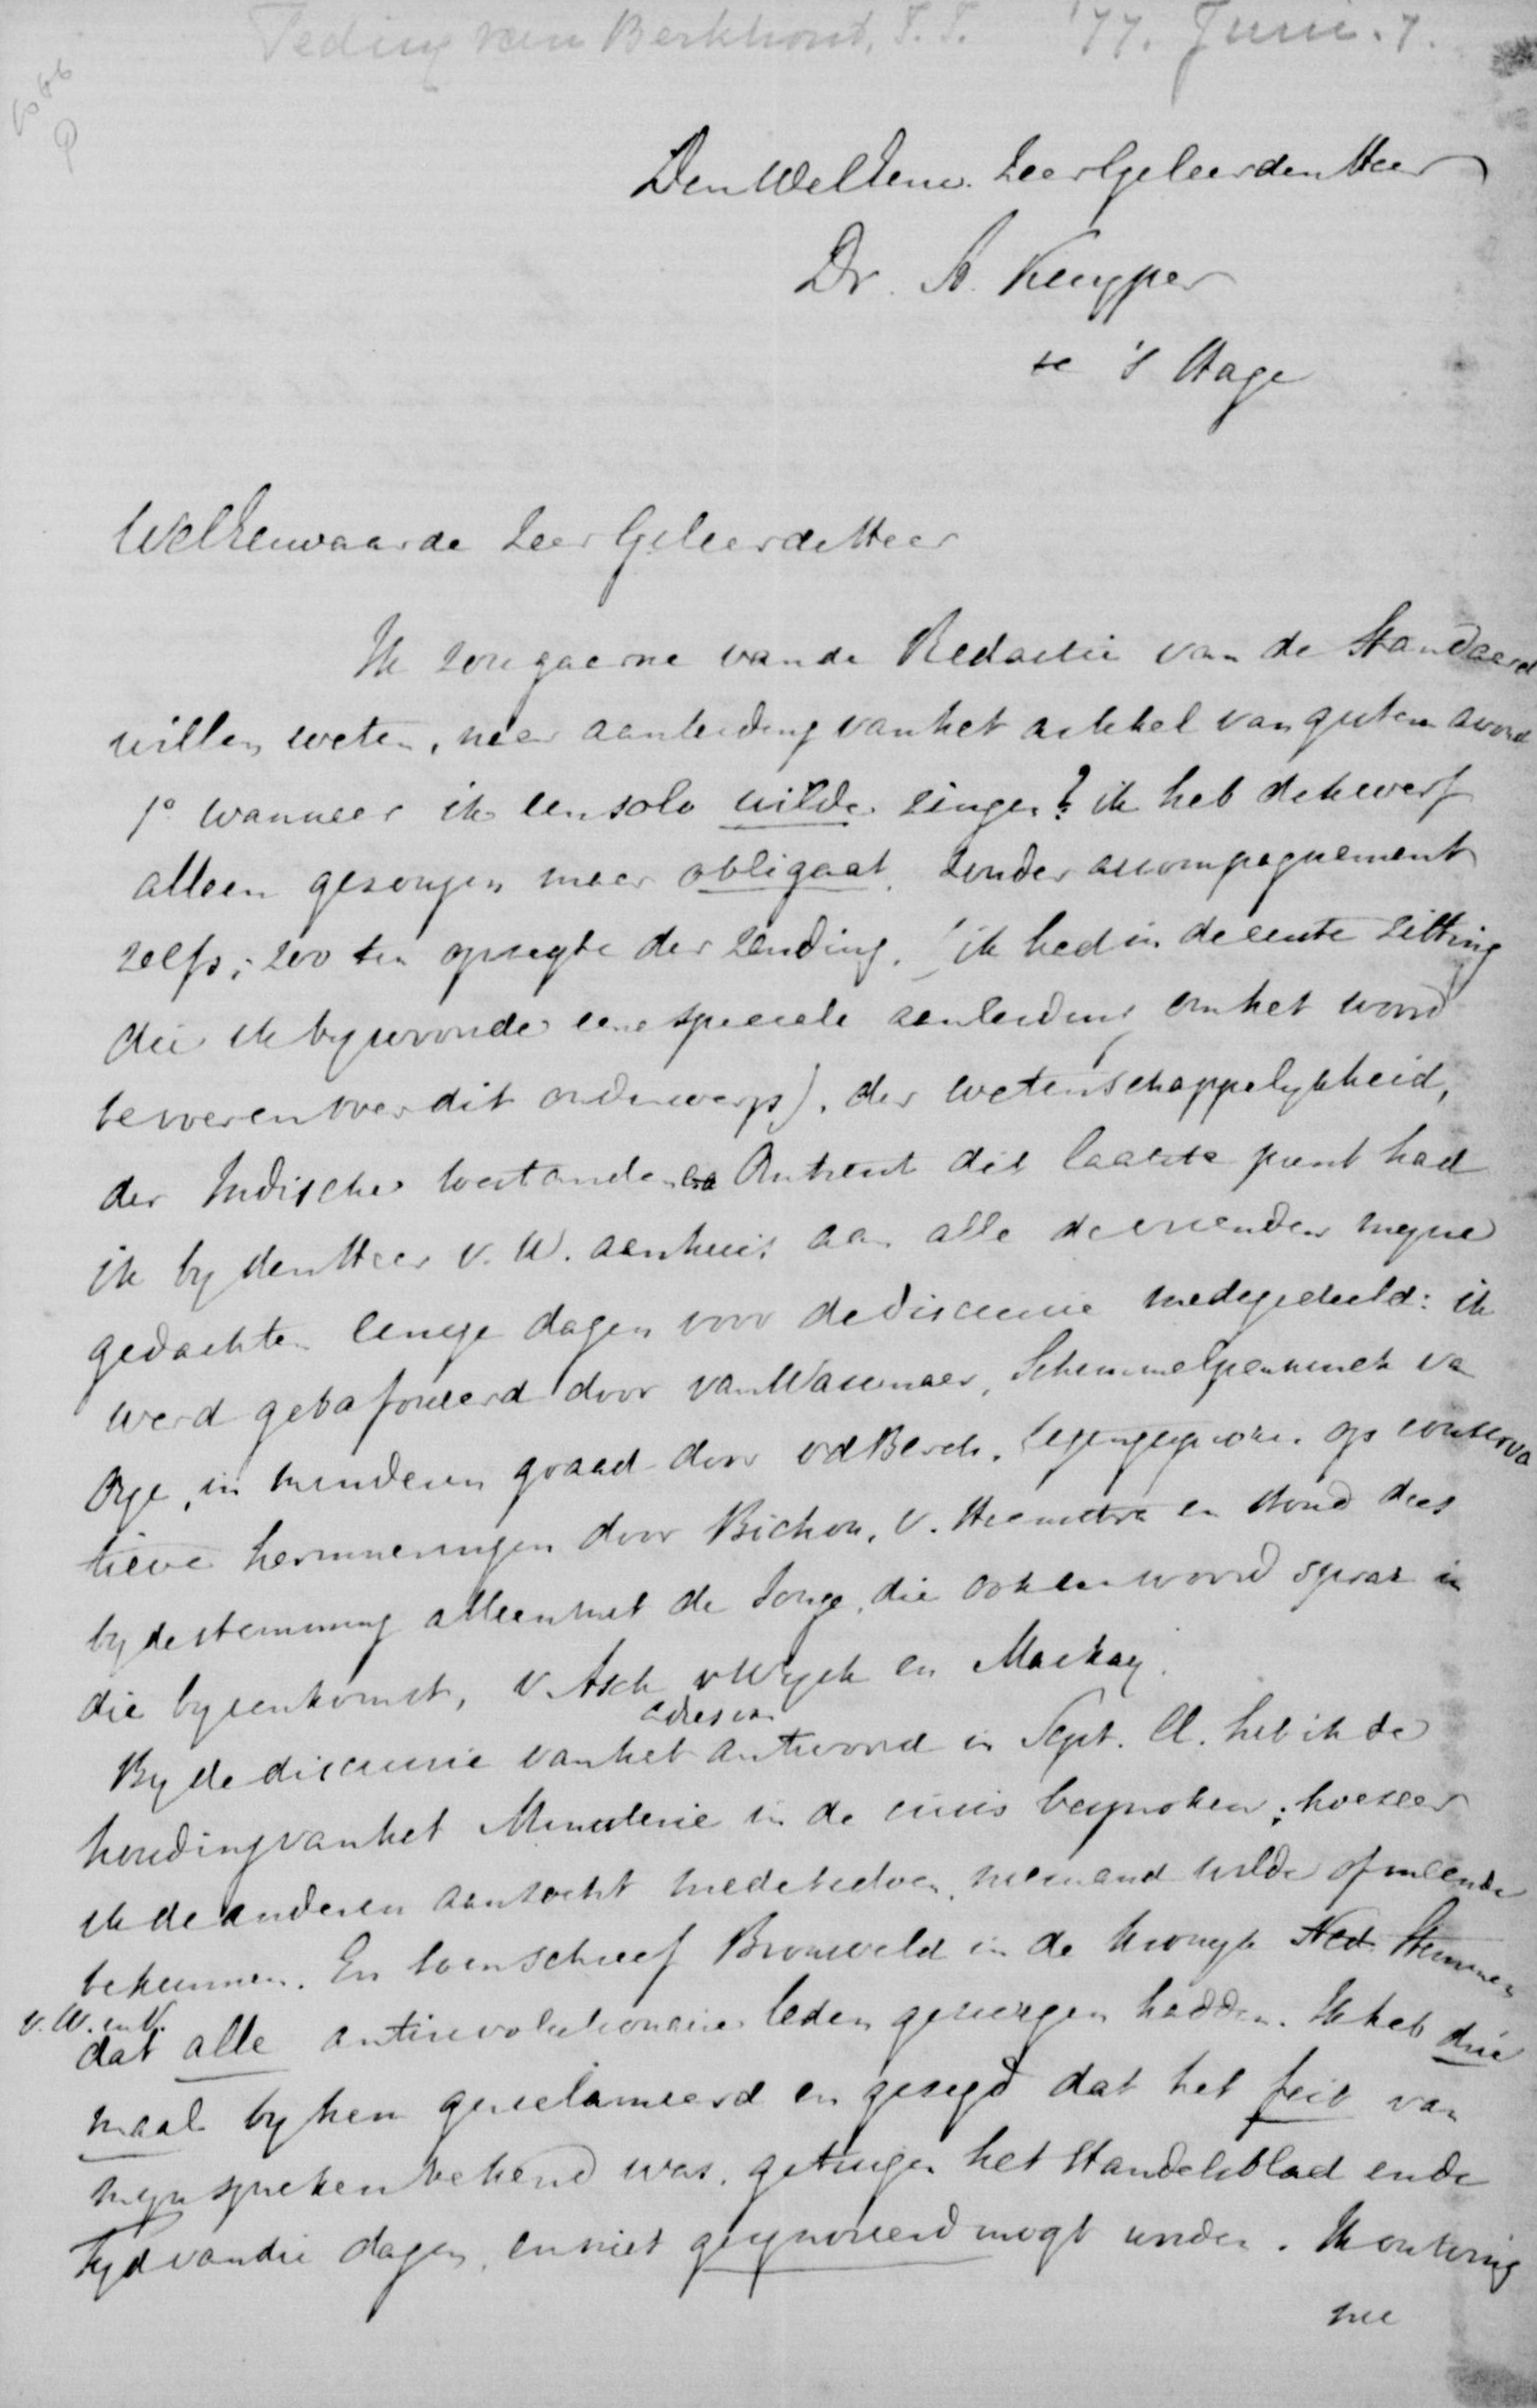 Teding van Berkhout, P. J. '77. Juni. 7.
Den WelEerw. Zeer Geleerden Heer
Dr. A. Kuyper
te 's Hage
WelEerwaarde Zeer Geleerde Heer
Ik zou gaarne van de Redactie van de Standaard
willen weten, naar aanleiding van het artikel van gister avond
1o wanneer ik een solo wilde zingen? ik heb dikwerf
alleen gezongen maar obligaat, zonder accompagnement
zelfs; zoo ten opzigte der zending. (ik had in de eerste zitting
die ik bijwoonde eene speciale aanleiding om het woord
te voeren over dit onderwerp), der wetenschappelijkheid,
der Indische toestanden Omtrent dit laatste punt had
ik bij den Heer v. W. aan huis aan alle de vrienden mijne
gedachten eenige dagen voor de discussie medegedeeld: ik
werd gebafoueerd door van Wassenaer, Schimmelpenninck va
Oye, in minderen graad door vd Berch. tegengesproken op conserva
tieve herinneringen door Bichon, v. Heemstra en stond dus
bij de stemming alleen met de Jonge, die ook een woord sprak in
die bijeenkomst, v. Asch v Wijck en Mackay.
adres van
By de discussie van het antwoord in Sept. ll. heb ik de
houding van het Ministerie in de crisis besproken; hoezeer
ik de anderen aanzocht mede te doen, niemand wilde of meende
te kunnen. En toen schreef Bronsveld in de kronyk Ned. Stemmen
v. W. en V.
dat alle antirevolutionaire leden gezwegen hadden. Ik heb drie
maal by hen gereclameerd en gezegd dat het feit van
mijn spreken bekend was, getuigen het Handelsblad en de
Tyd van die dagen, en niet geignoreerd mogt worden. Ik ontving
nu